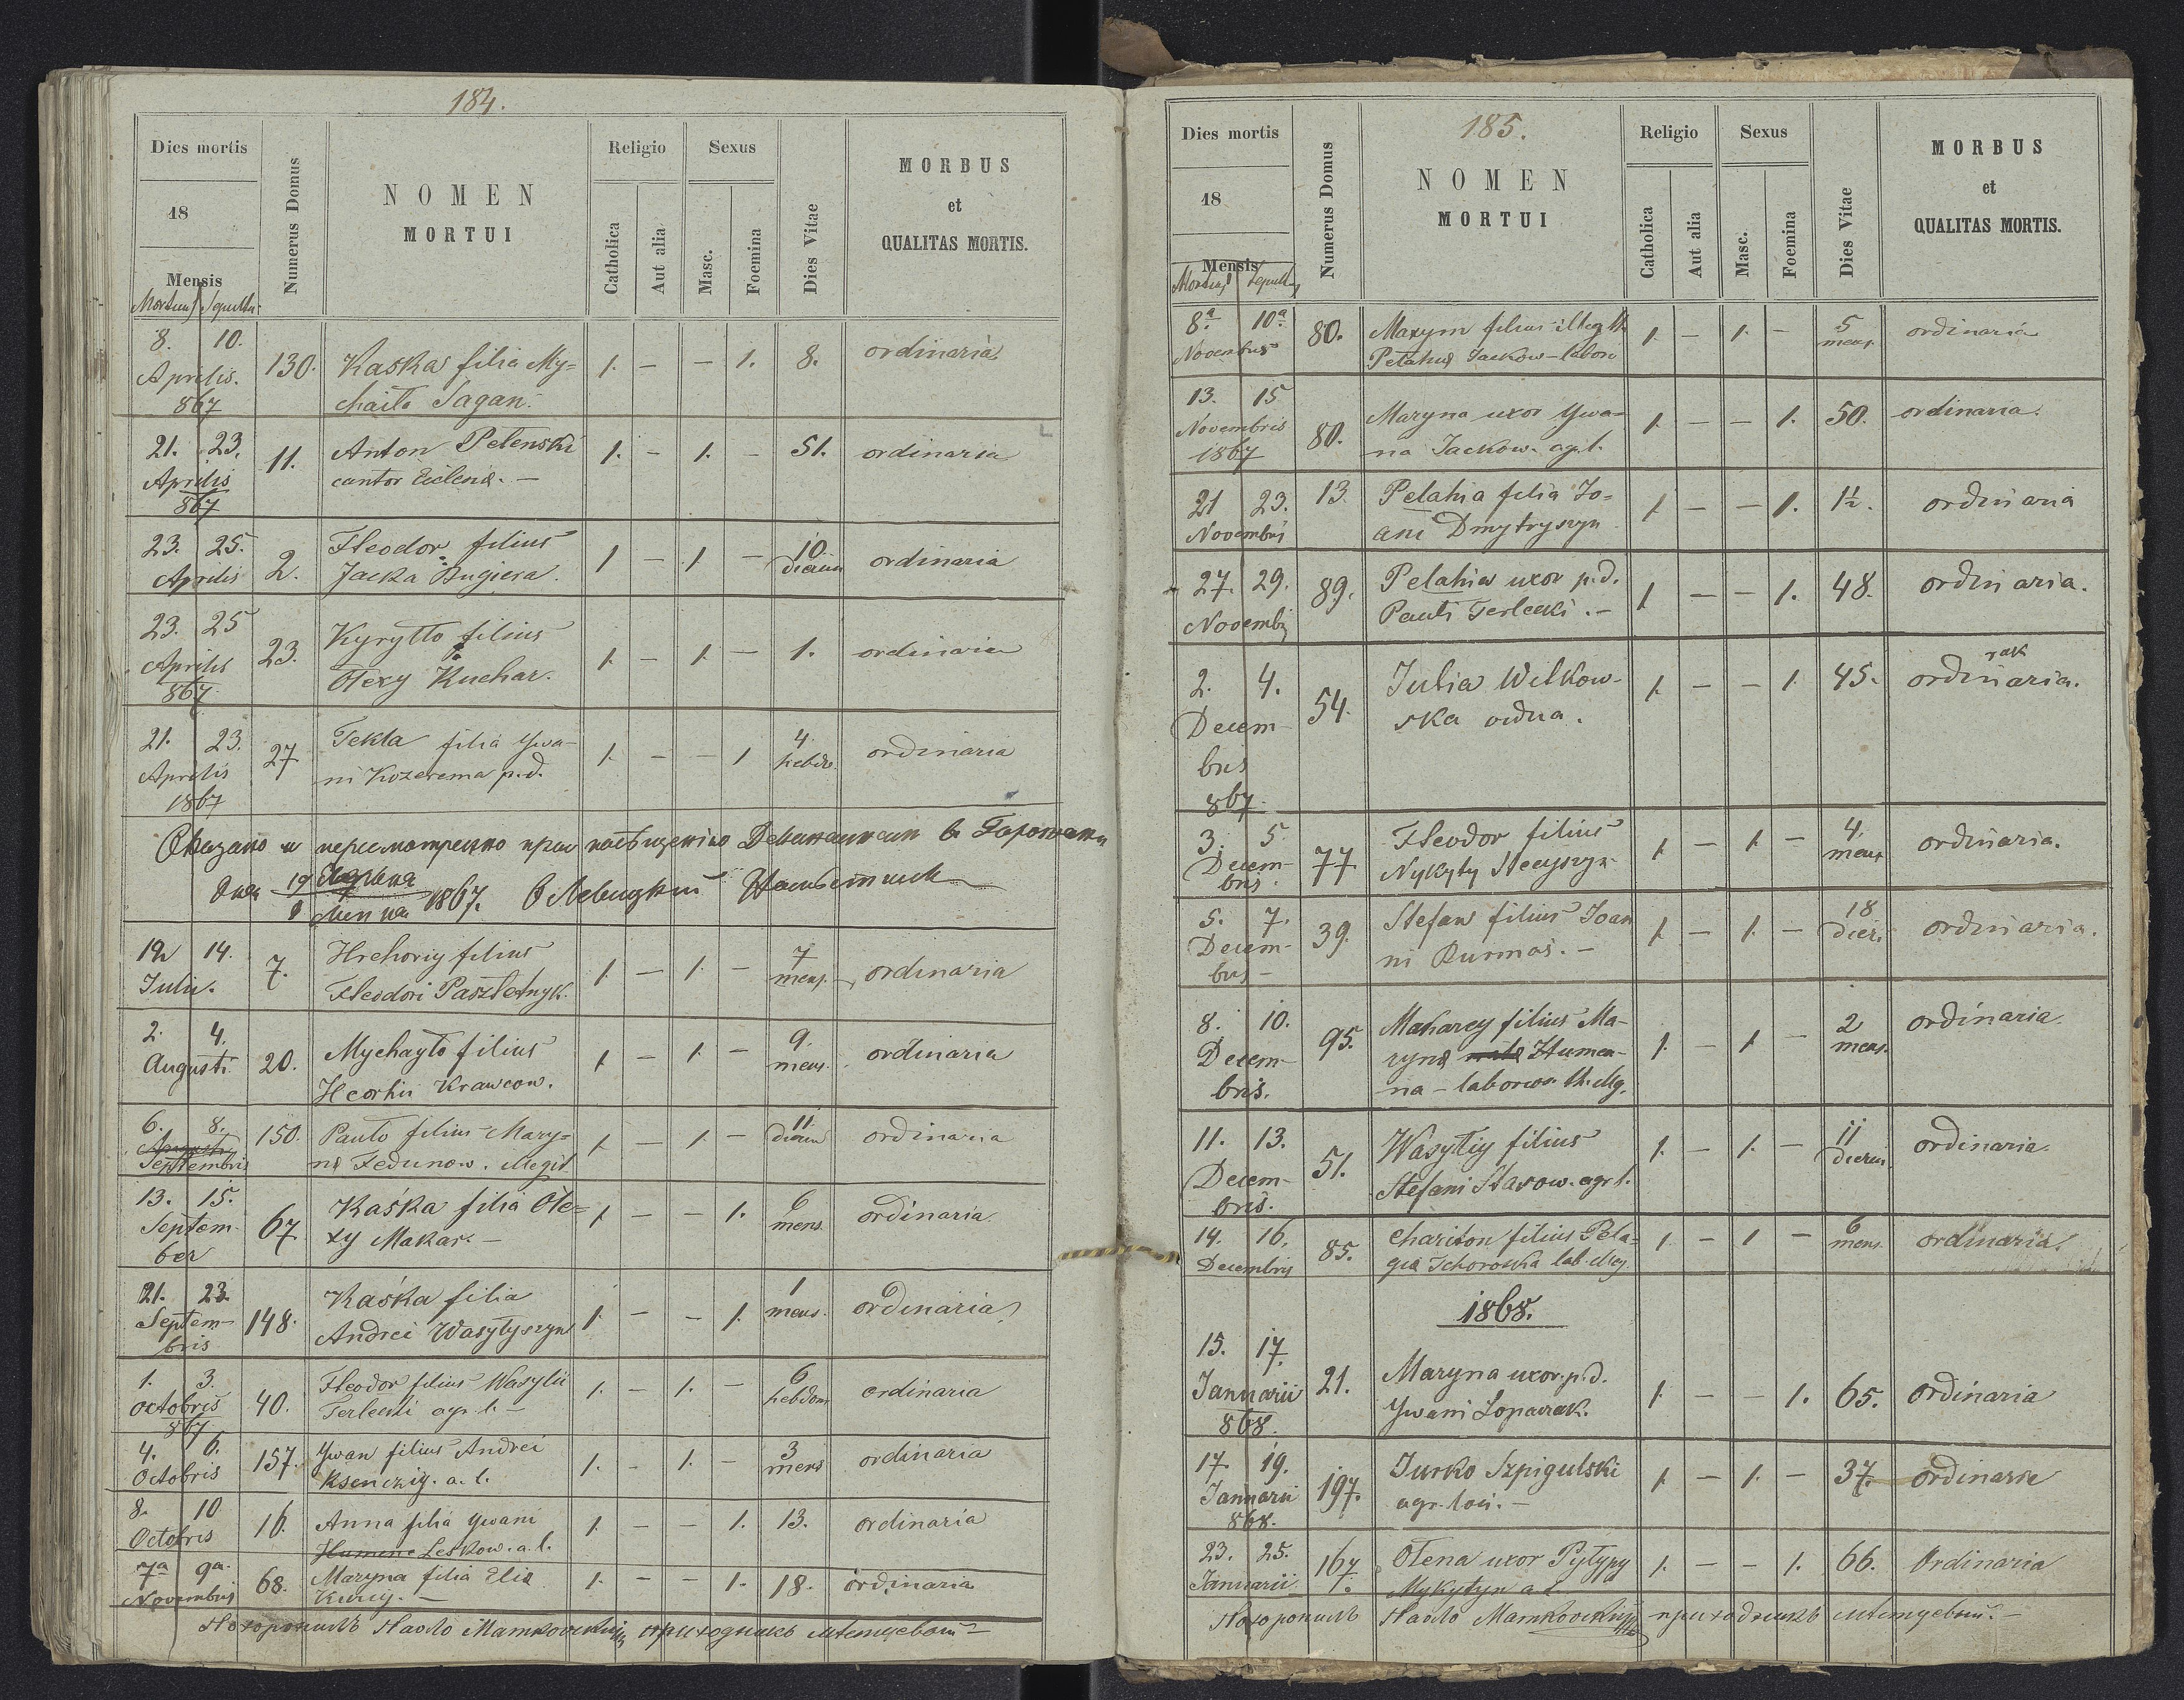 184.
Dies mortis
18
Mensis
Mortuus Sepultus
Numerus Domus
NOMEN
MORTUI
Religio
Catholica
Aut alia
Sexus
Masc.
Foemina
Dies Vitae
MORBUS
et
QUALITAS MORTIS.
8. 10. Aprilis. 867 130. Kaśka filia My=
chaiło Sagan. 1. — — 1. 8. ordinaria
21. 23. Aprilis 867 11. Anton Petenski
cantor 1. - 1. - 51. ordinaria
23. 25. Aprilis 2. Fteodor filius
Jacka Bugiera. 1 - 1 - 10 dierum ordinaria
23. 25 Aprilis 867. 23. Kyryłło filius
Ołexy Kuchar. 1. - 1. - 1. ordinaria
21. 23. Aprilis 1867 27 Tekla filia Ywa-
ni Kozerema p.d. 1. - - 1 4 hebdo. ordinaria
1867.
12 14. Julii. 7. Hrehoriy filius
Fteodori Pasztetnyk. 1. - 1. - 7 mens. ordinaria
2. 4. Augusti 20. Mychayło filius
Heorhii Krawcow. 1 - 1. - 9. mens. ordinaria
6. 8. Augusti Septembris 150. Pawło filius Mary=
næ Fedunow. illegit. 1. - 1. - 11 dierum ordinaria
13. 15. Septem-
ber 67 Kaśka filia Ole=
xy Makar. - 1. - - 1. 6 mens. ordinaria.
21. 23. Septem-
bris 148. Kaśka filia
Andrei Wasyłyszyn 1. - - 1. 1 mens. ordinaria
1. 3. octobris 867 40. Fteodor filius Wasylii
Terlecki agr. l. - 1. - 1. - 6 hebdom ordinaria
4. 6. Octobris 157. Ywan filius Andrei
Ksenczig. a. l. 1. - 1. - 3 mens ordinaria
8. 10 Octobris 16. Anna filia Ywani
Humene Leskow. a. l. 1. - - 1. 13. ordinaria
7a 9a. Novembris 68. Maryna filia Eliæ
1. - - 1. 18. ordinaria
185.
Dies mortis
18
Mensis
Mortuus Sepultus
Numerus Domus
NOMEN
MORTUI
Religio
Catholica
Aut alia
Sexus
Masc.
Foemina
Dies Vitae
MORBUS
et
QUALITAS MORTIS.
8a. 10a. Novembris 80. Maxym filius illegth.
Pelahiæ Jackow - labor 1. - 1. - 5 mens. ordinaria
13. 15 Novembris 1867 80. Maryna uxor Ywa-
na Jackow. ag. l. 1. - - 1. 50. ordinaria.
21 23. Novembris 13. Pelahia filia Jo=
ani Dmytryszyn 1. - - 1. 1½. ordinaria
27. 29. Novembris 89. Pelahia uxor p.d.
Pauli Terlecki. - 1. - - 1. 48. ordinaria.
2. 4. Decem-
bris 867. 54. Julia Witkow-
ska vidua. 1. - - 1. 45. rak
ordinaria.
3. 5. Decem-
bris. 77 Fteodor filius
Nykyty Stecyszyn 1. - 1. - 4. mens ordinaria.
5. 7. Decem-
bris - 39. Stefan filius Joan
ni Burmas. - 1. - 1. - 18 dier. ordinaria.
8. 10. Decem-
bris. 95. Makarey filius Ma-
rynæ Humen-
na - 1. - 1. - 2 mens. ordinaria.
11. 13. Decem-
bris. 51. Wasyliy filius
Stefani Starow. agr. l. 1. - 1. - 11 dierum ordinaria.
14. 16. Decembris 85. Chariton filius Pela-
gia 1. - 1 - 6 mens. ordinaria.
1868.
15. 17. Januarii 868. 21. Maryna uxor. p.d.
Ywani Łopaczak. 1. - - 1. 65. ordinaria
17 19. Januarii 868. 197. Jurko Szpigulski
agr. loci. - 1. - 1. - 37. ordinaria
23. 25. Januarii 167. Ołena uxor Pyłypy
Mykytyn a. l. 1. - - 1. 66. Ordinaria